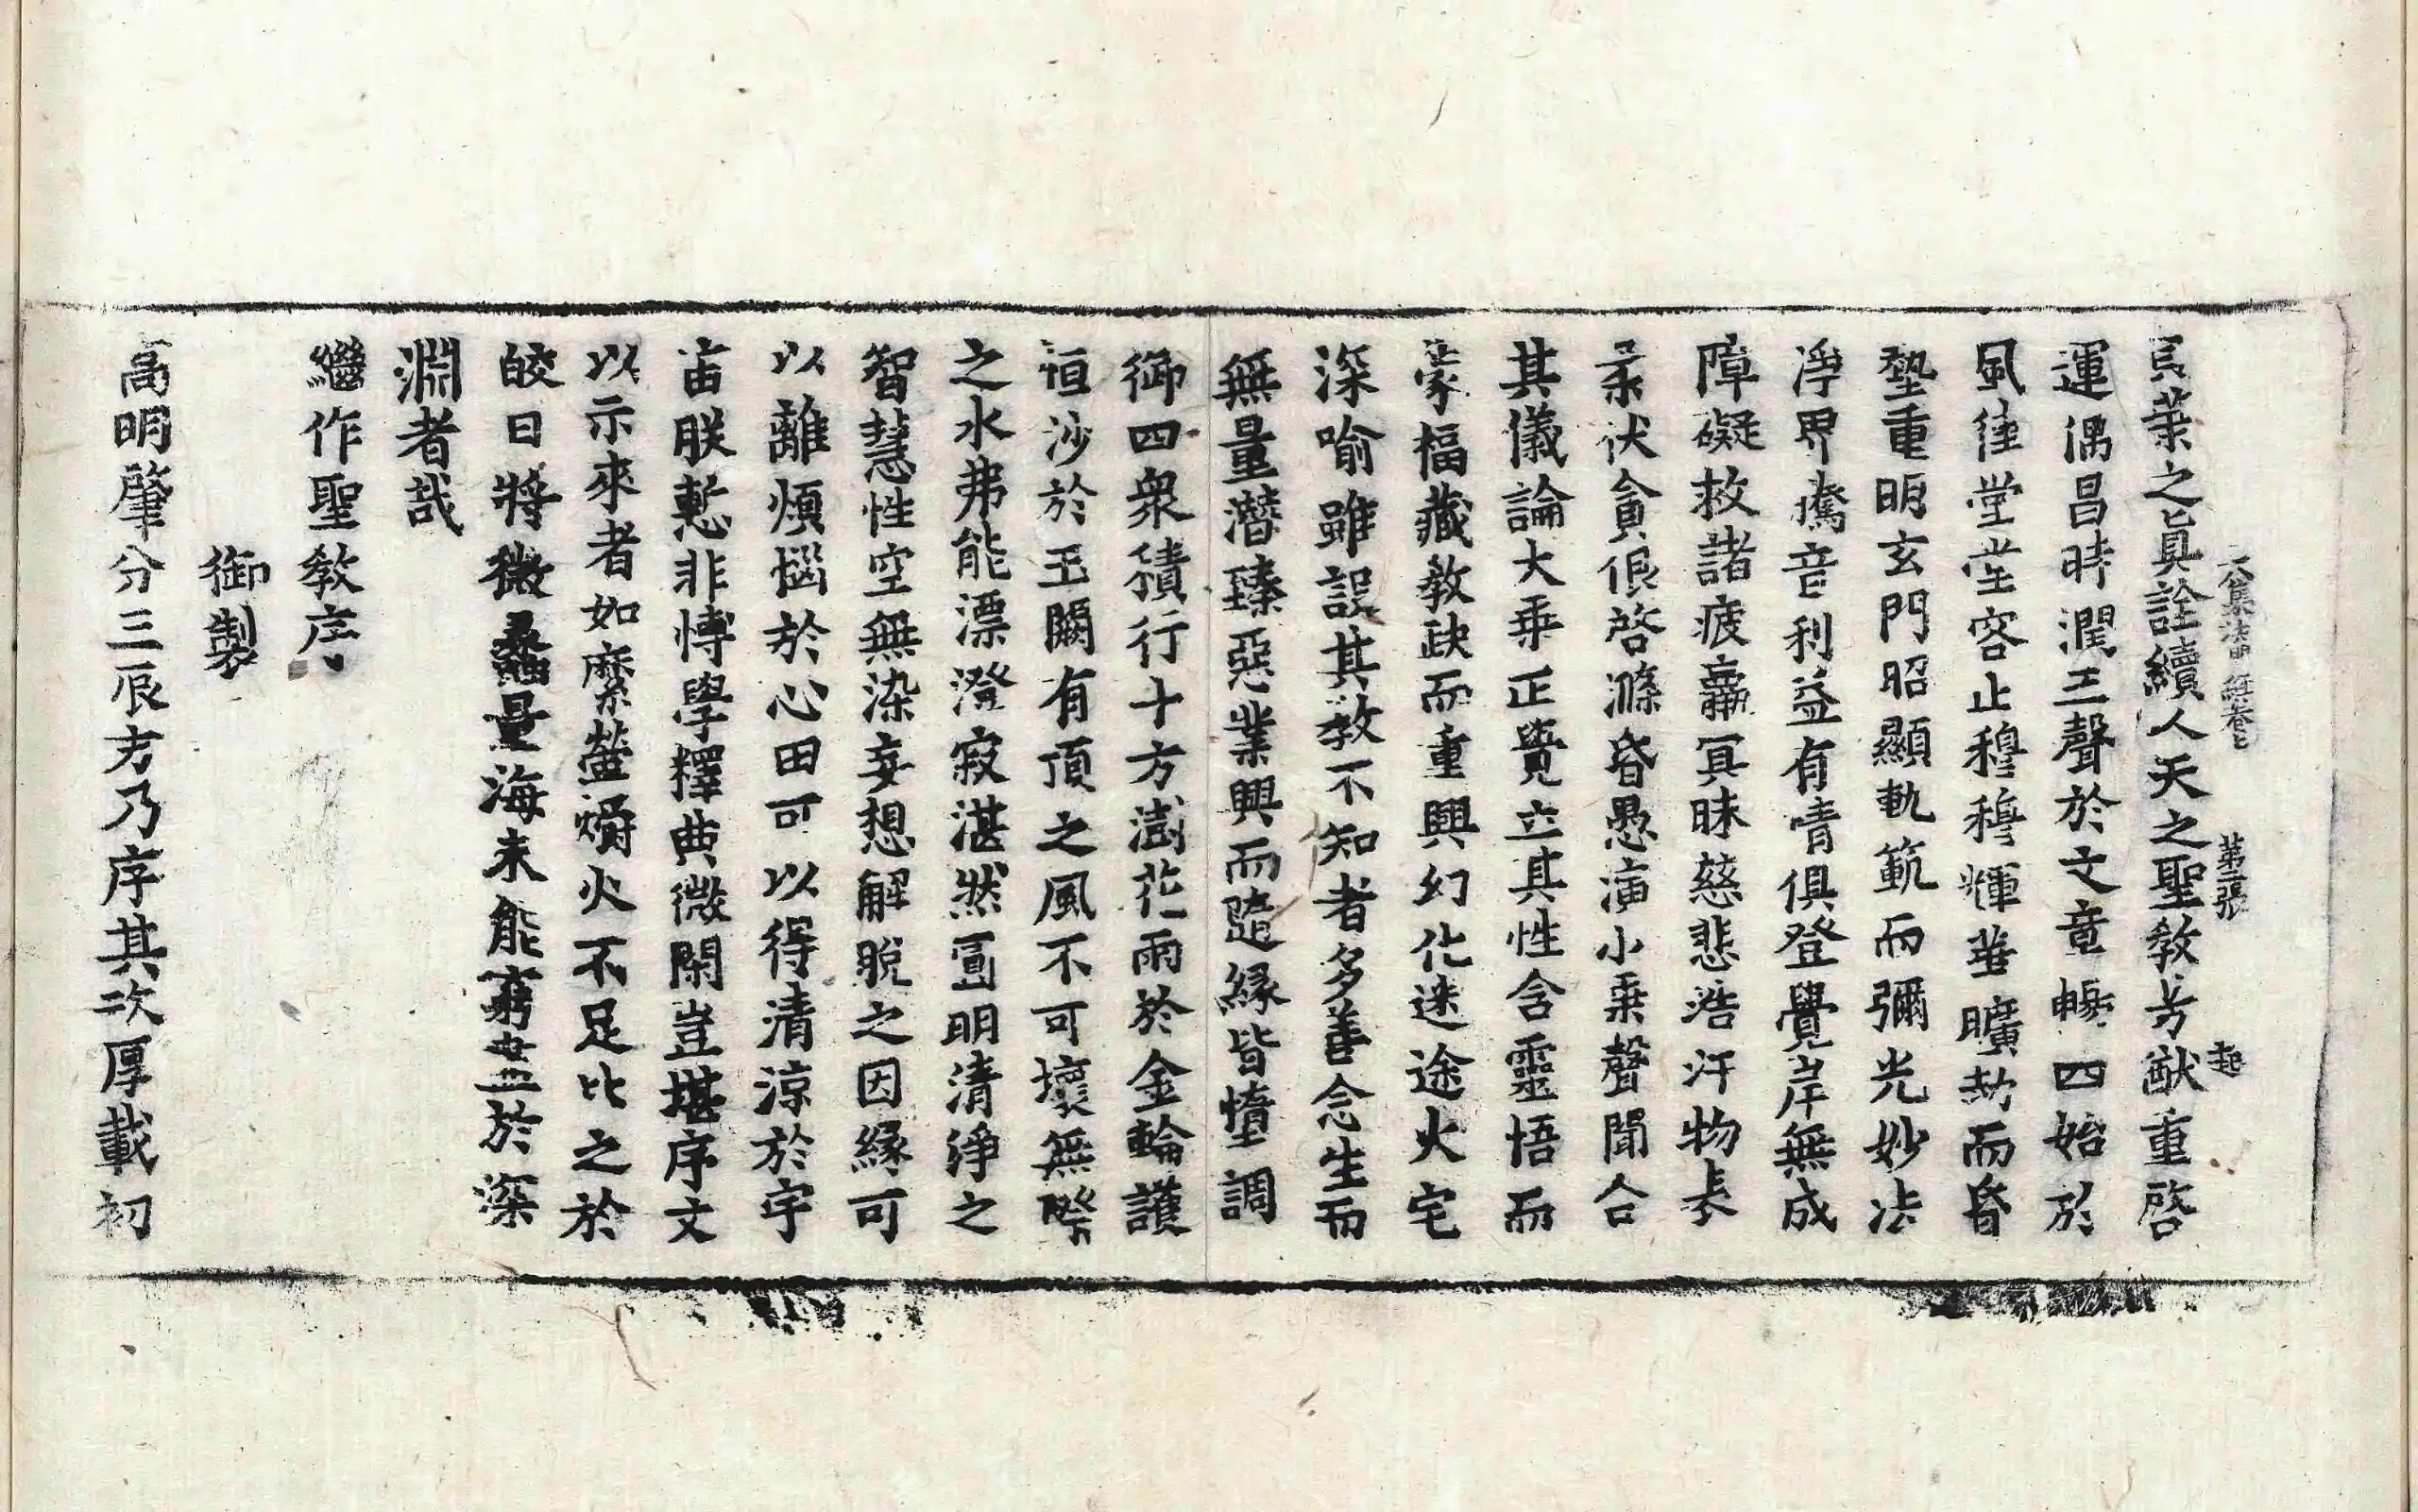 大集法門經卷上 第二張 起
貝葉之眞詮續人天之聖教芳猷重啓
運偶昌時潤三聲於文章暢四始於
風律堂堂容止穆穆輝華曠劫而昏
蟄重明玄門昭顯軌範而彌光妙法
淨界騰音利益有情俱登覺岸無成
障礙救諸疲羸冥昧慈悲浩汗物表
柔伏貪佷啓滌昏愚演小乗聲聞合
其儀論大乗正覺立其性含靈悟而
蒙福藏教缺而重興幻化迷途火宅
深喻雖設其教不知者多善念生而
無量潜臻惡業興而隨緣皆墮調
御四衆積行十方澍花雨於金輪護
恒沙於玉闕有頂之風不可壞無際
之水弗能漂澄寂湛然圓明清淨之
智慧性空無染妄想解脫之因緣可
以離煩惱於心田可以得清涼於宇
宙朕慙非博學釋典微閑豈堪序文
以示來者如縻螢爝火不足比之於
皎日將微蠡量海未能窮盡於深
淵者哉
繼作聖教序
御製
高明肇分三辰方乃序其次厚載初